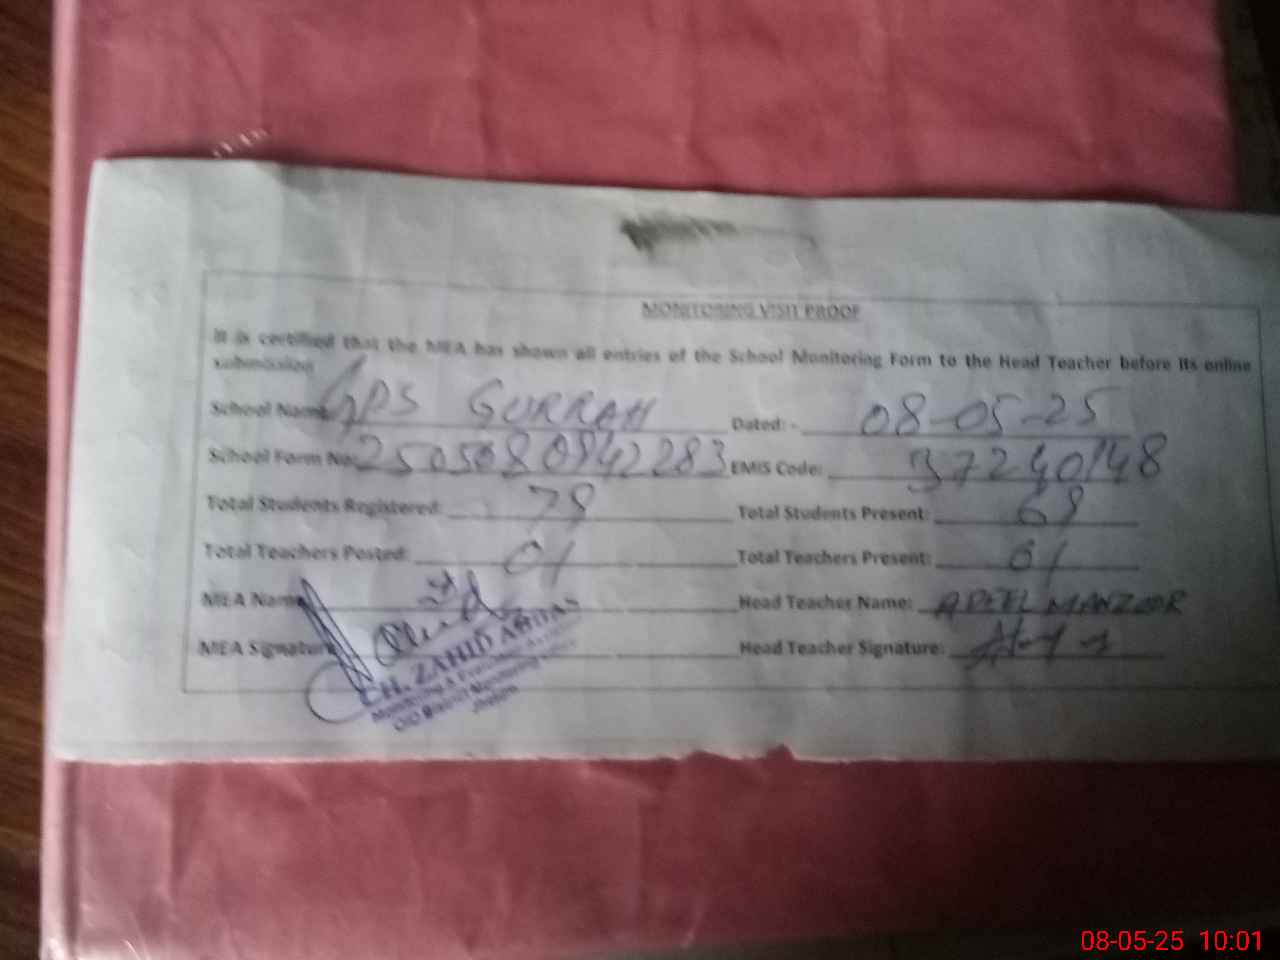 MONITORING VISIT PROOF
It is certified that the MEA has shown all entries of the School Monitoring Form to the Head Teacher before its online
submission
School Name GPS GURRAH Dated: - 08-05-25
School Form No. EMIS Code: 37240148
Total Students Registered: 78 Total Students Present:
Total Teachers Posted: 01 Total Teachers Present: 01
MEA Name Head Teacher Name: MANZOOR
MEA Signature Head Teacher Signature:
CH. ZAHID ABBAS
Monitoring & Evaluation
O/O District Monitoring
Jhelum
08-05-25 10:01